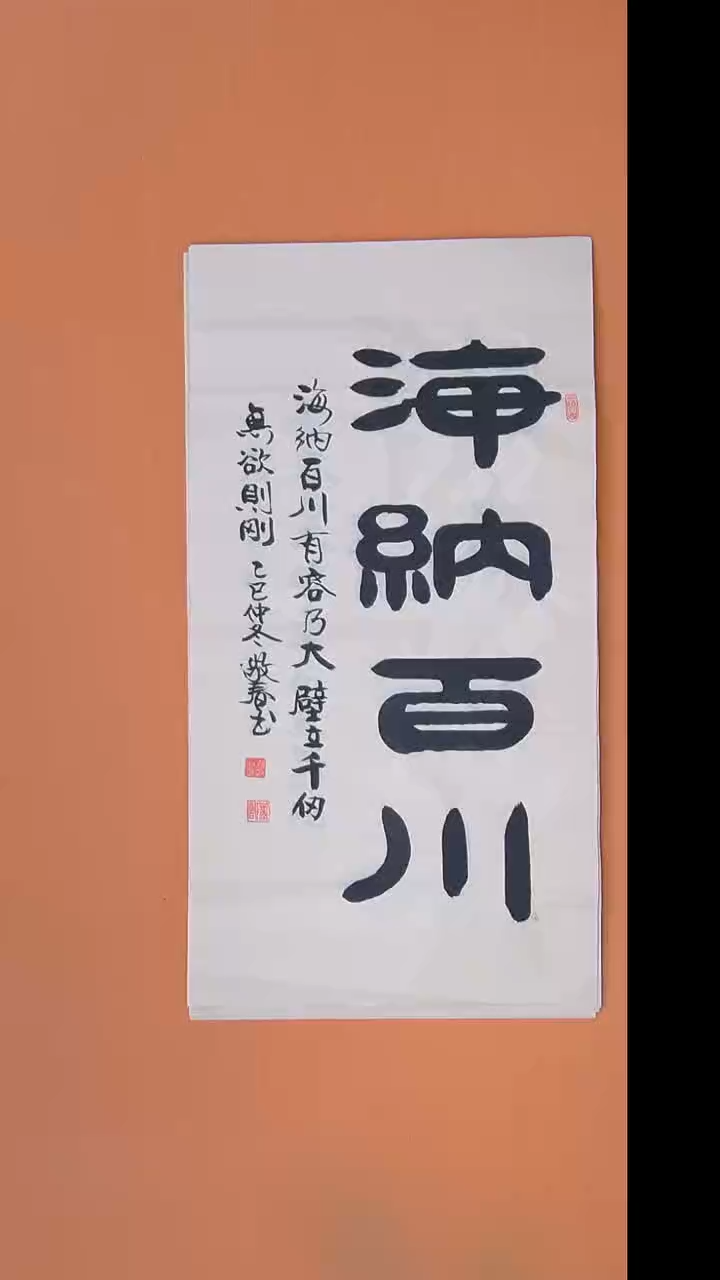 海納百川
海納百川有容乃大壁立千仞
無欲則剛乙巳仲冬敬春书